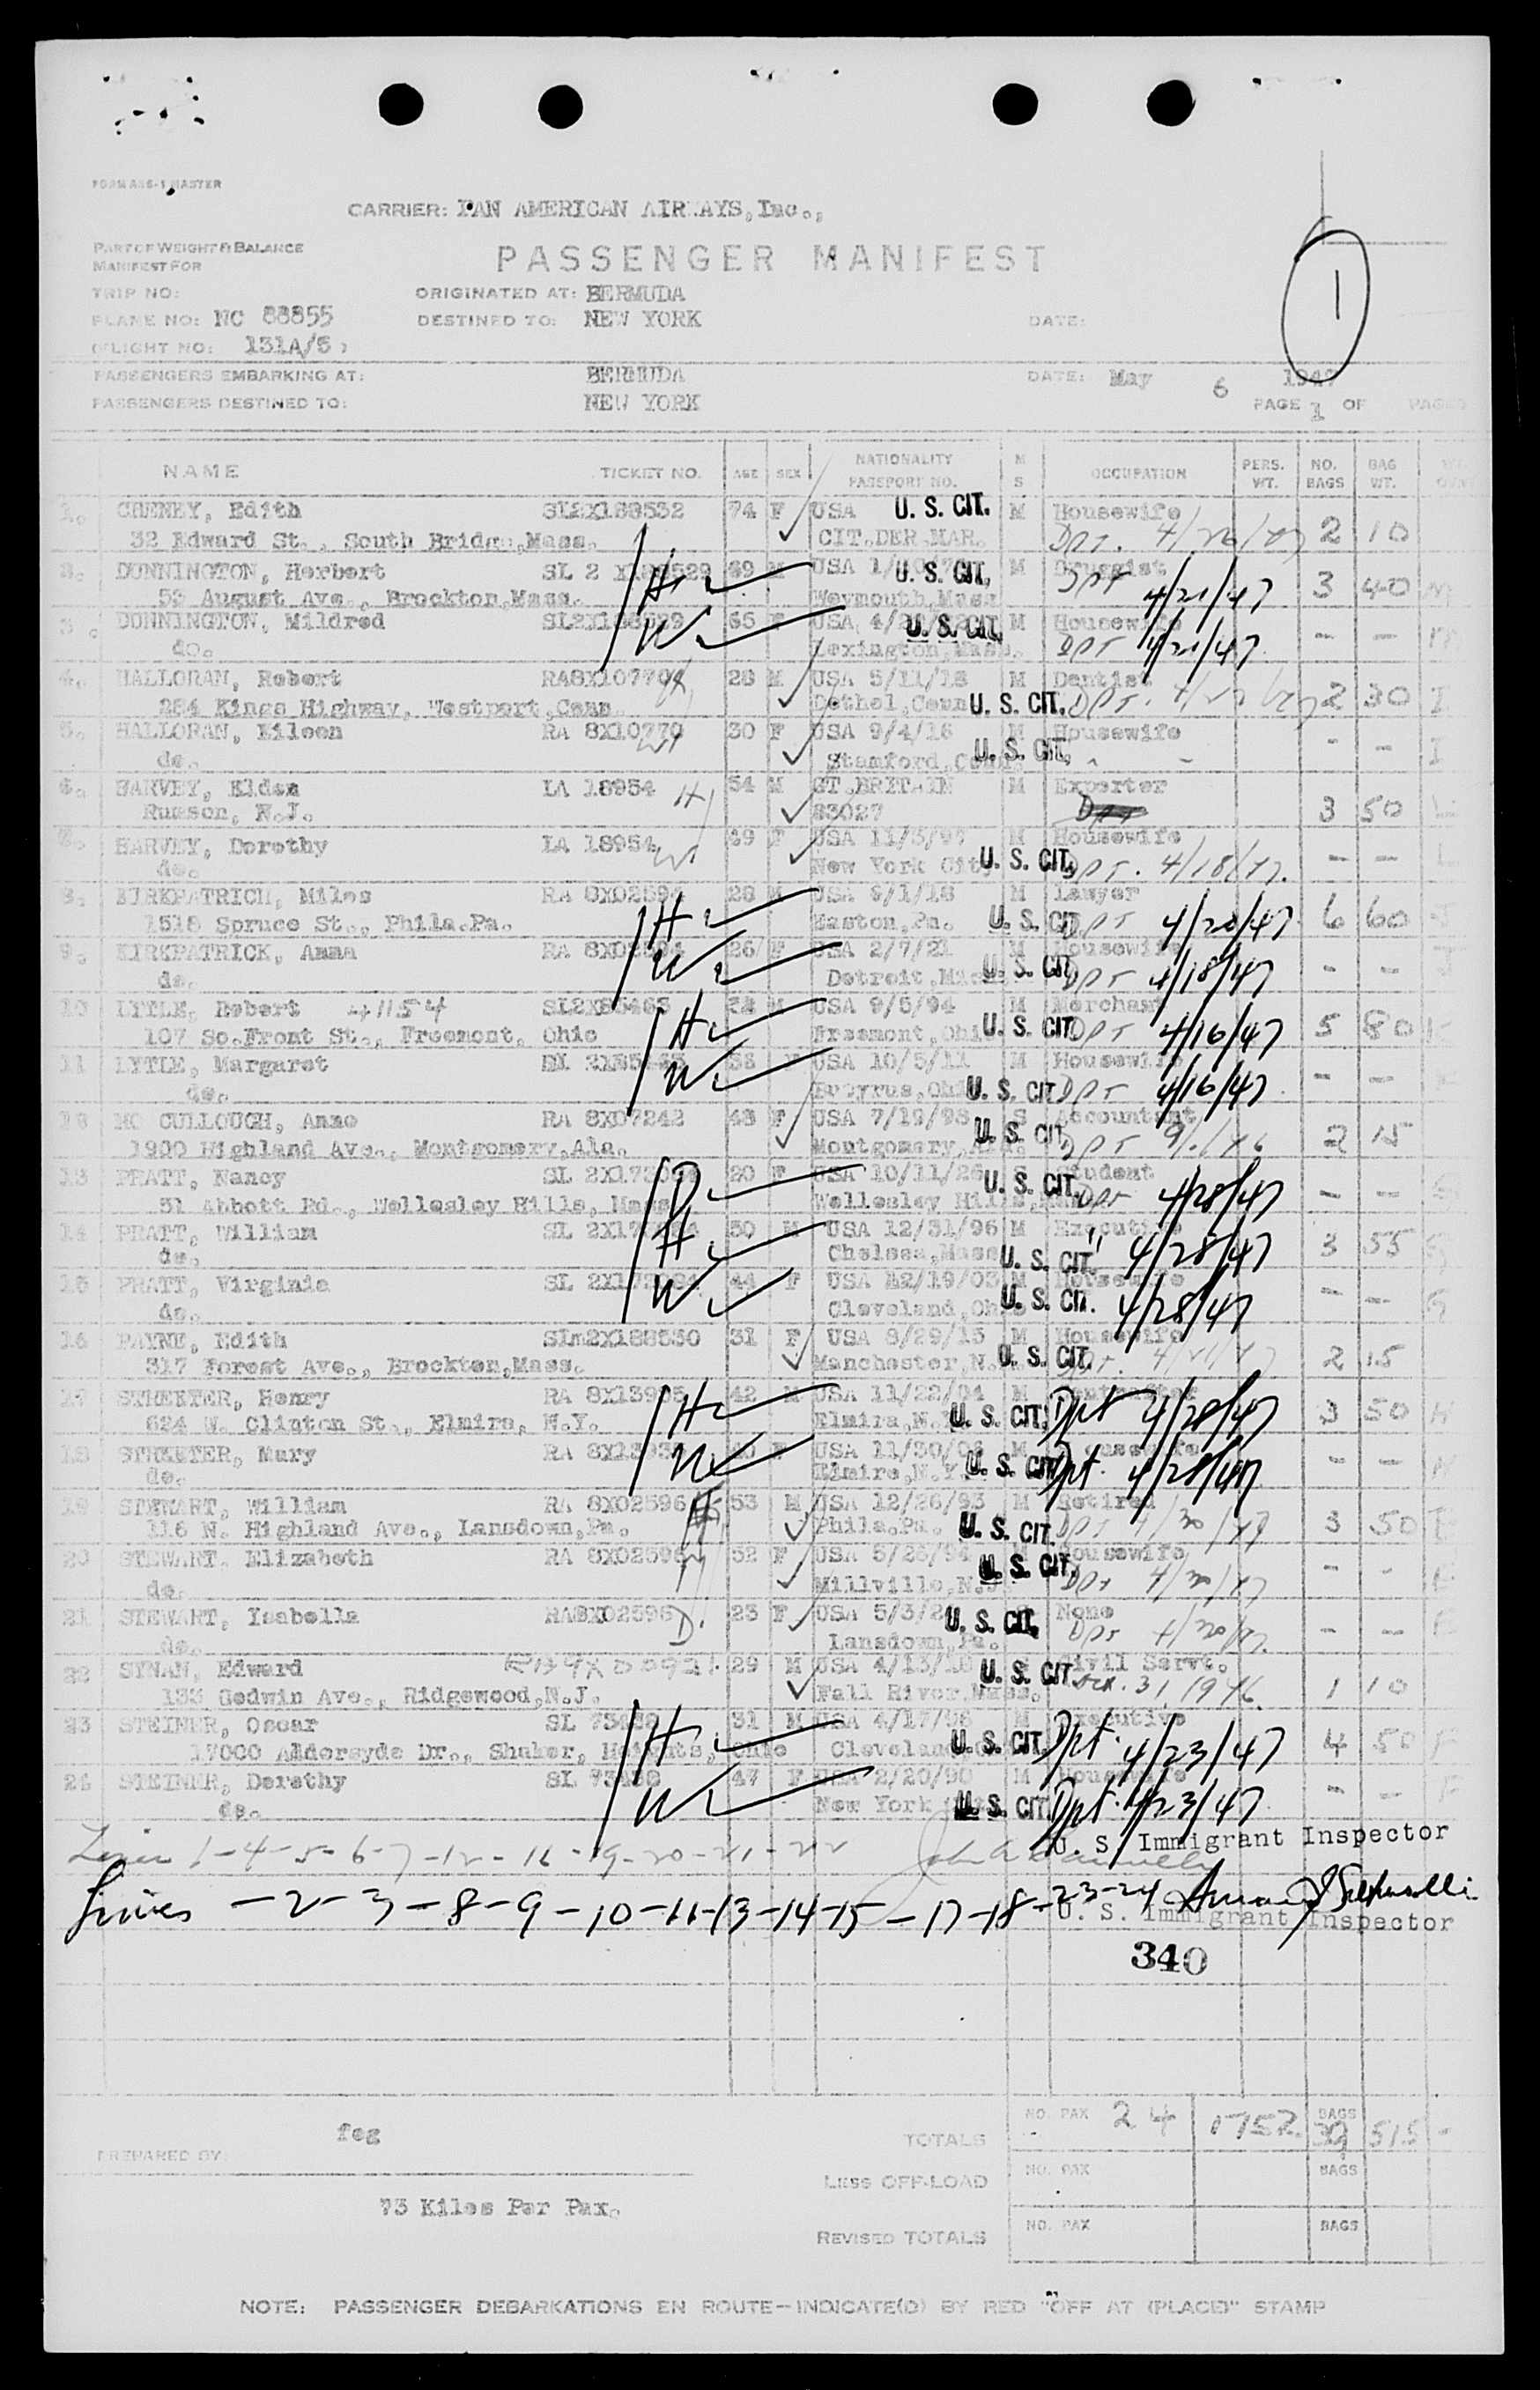 FORM AS6-1 MASTER
CARRIER: PAN AMERICAN AIRWAYS, Inc.,
PART OF WEIGHT & BALANCE
MANIFEST FOR
PASSENGER MANIFEST
1
TRIP NO: ORIGINATED AT: BERMUDA
PLANE NO: NC 88855 DESTINED TO: NEW YORK DATE:
(FLIGHT NO: 131A/5)
PASSENGERS EMBARKING AT: BERMUDA DATE: May 6 1947
PASSENGERS DESTINED TO: NEW YORK PAGE 1 OF PAGES
NAME TICKET NO. AGE SEX NATIONALITY PASSPORT NO. M S OCCUPATION PERS. WT. NO. BAGS BAG WT.
1. CHENEY, Edith SL2X188532 74 F USA U.S. CIT. M Housewife
32 Edward St., South Bridge, Mass. CIT.DER.MAR. DPT. 2 10
2. DUNNINGTON, Herbert SL 2 69 M USA U.S. CIT. M Druggist
53 August Ave., Brockton, Mass. H Weymouth, Mass DPT 4/21/47 3 40
3. DUNNINGTON, Mildred 65 F USA U.S. CIT. M Housewife
do. W Lexington, Mass. DPT 4/21/47 - -
4. HALLORAN, Robert 28 M USA 5/11/18 M Dentist
284 Kings Highway, Westport, Conn. H Bethel, Conn U.S. CIT. DPT. 2 30 I
5. HALLORAN, Eileen RA 8X10770 30 F USA 9/4/16 M Housewife
do. W Stamford, Conn. U.S. CIT. - - I
6. HARVEY, Elden LA 18954 H 54 M GT.BRITAIN M Exporter
Rumson, N.J. 83027 3 50 L
7. HARVEY, Dorothy LA 18954 W 49 F USA M Housewife
do. New York City U.S. CIT. DPT. 4/18/47. - - L
8. KIRKPATRICK, Miles RA 8X02594 28 M USA M Lawyer
1518 Spruce St., Phila.Pa. H Easton, Pa. U.S. CIT DPT 4/20/47 6 60 J
9. KIRKPATRICK, Anna RA 26 F USA 2/7/21 M Housewife
do. W Detroit, Mich U.S. CIT DPT 4/18/47 - - J
10 LYTLE, Robert 41154 M USA 9/5/94 M Merchant
107 So.Front St., Freemont, Ohio H Freemont, Ohio U.S. CIT. DPT 4/16/47 5 80 K
11 LYTLE, Margaret USA 10/5/11 M Housewife
do. W Bucyrus, Ohio U.S. CIT DPT 4/16/47 - -
12 MC CULLOUGH, Anne RA 8X07242 48 F USA 7/19/98 S Accountant
1900 Highland Ave., Montgomery, Ala. Montgomery, Ala. U.S. CIT. DPT 2 15
13 PRATT, Nancy 20 F USA 10/11/26 S Student
31 Abbott Rd., Wellesley Hills, Mass D Wellesley Hills, U.S. CIT. DPT 4/28/47 - - G
14 PRATT, William 50 M USA 12/31/96 M Executive
do. H Chelsea, Mass U.S. CIT. " 4/28/47 3 55 G
15 PRATT, Virginia 44 F USA 12/19/03 M Housewife
do. W Cleveland, Ohio U.S. CIT. 4/28/47 - - G
16 PAYNE, Edith 31 F USA 8/29/15 M Housewife
317 Forest Ave., Brockton, Mass. Manchester, N. U.S. CIT. 2 15
17 STREETER, Henry RA 42 M USA M
624 W. Clinton St., Elmira, N.Y. H Elmira, N. U.S. CIT. Dpt 4/28/47 3 50 H
18 STREETER, Mary RA F USA M Housewife
do. W Elmira, N.Y. U.S. CIT. Dpt. 4/28/47. - - H
19 STEWART, William RA 8X02596 H 53 M USA 12/26/93 M Retired
116 N. Highland Ave., Lansdown, Pa. Phila.Pa. U.S. CIT. DPT 4/30/47 3 50 E
20 STEWART, Elizabeth RA 8X02596 W 52 F USA M Housewife
do. Millville, N.J. U.S. CIT. DPT 4/30/47 - - E
21 STEWART, Isabella RA8X02596 D. 23 F USA None
do. Lansdown, Pa. U.S. CIT. DPT 4/30/47. - - E
22 SYNAN, Edward 29 M USA Civil Servt.
133 Godwin Ave., Ridgewood, N.J. Fall River, Mass. U.S. CIT. 31, 1946. 1 10
23 STEINER, Oscar SL 31 M USA M Executive
17000 Aldersyde Dr., Shaker, Heights, Ohio H Cleveland U.S. CIT. Dpt. 4/23/47 4 50 F
24 STEINER, Dorothy SL 47 F USA 2/20/90 M Housewife
do. W New York U.S. CIT. Dpt. 4/23/47. - - F
Lines 1-4-5-6-7-12-16-19-20-21-22 U. S. Immigrant Inspector
Lines -2-3-8-9-10-11-13-14-15-17-18-23-24
U. S. Immigrant Inspector
340
PREPARED BY: feg
TOTALS NO. PAX 24 1752 BAGS 39 515 -
LESS OFF-LOAD NO. PAX BAGS
73 Kilos Per Pax.
REVISED TOTALS NO. PAX BAGS
NOTE: PASSENGER DEBARKATIONS EN ROUTE—INDICATE(D) BY RED "OFF AT (PLACE)" STAMP